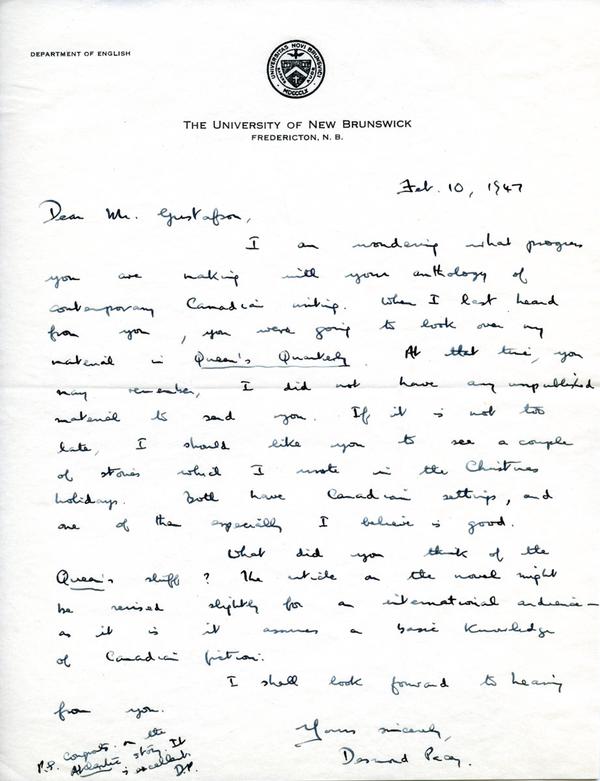 DEPARTMENT OF ENGLISH
UNIVERSITAS NOVI BRUNSVICI
MDCCCLX
THE UNIVERSITY OF NEW BRUNSWICK
FREDERICTON, N. B.
Feb. 10, 1947
Dear Mr. Gustafson,
I am wondering what progress
you are making with your anthology of
contemporary Canadian writing. When I last heard
from you, you were going to look over my
material in Queen's Quarterly. At that time, you
may remember, I did not have any unpublished
material to send you. If it is not too
late, I should like you to see a couple
of stories which I wrote in the Christmas
holidays. Both have Canadian settings, and
one of them especially I believe is good.
What did you think of the
Queen's stuff? The article on the novel might
be revised slightly for an international audience –
as it is it assumes a basic knowledge
of Canadian fiction.
I shall look forward to hearing
from you.
Yours sincerely,
Desmond Pacey.
P.S. Congrats. on the
Atlantic story. It
is excellent.
D.P.